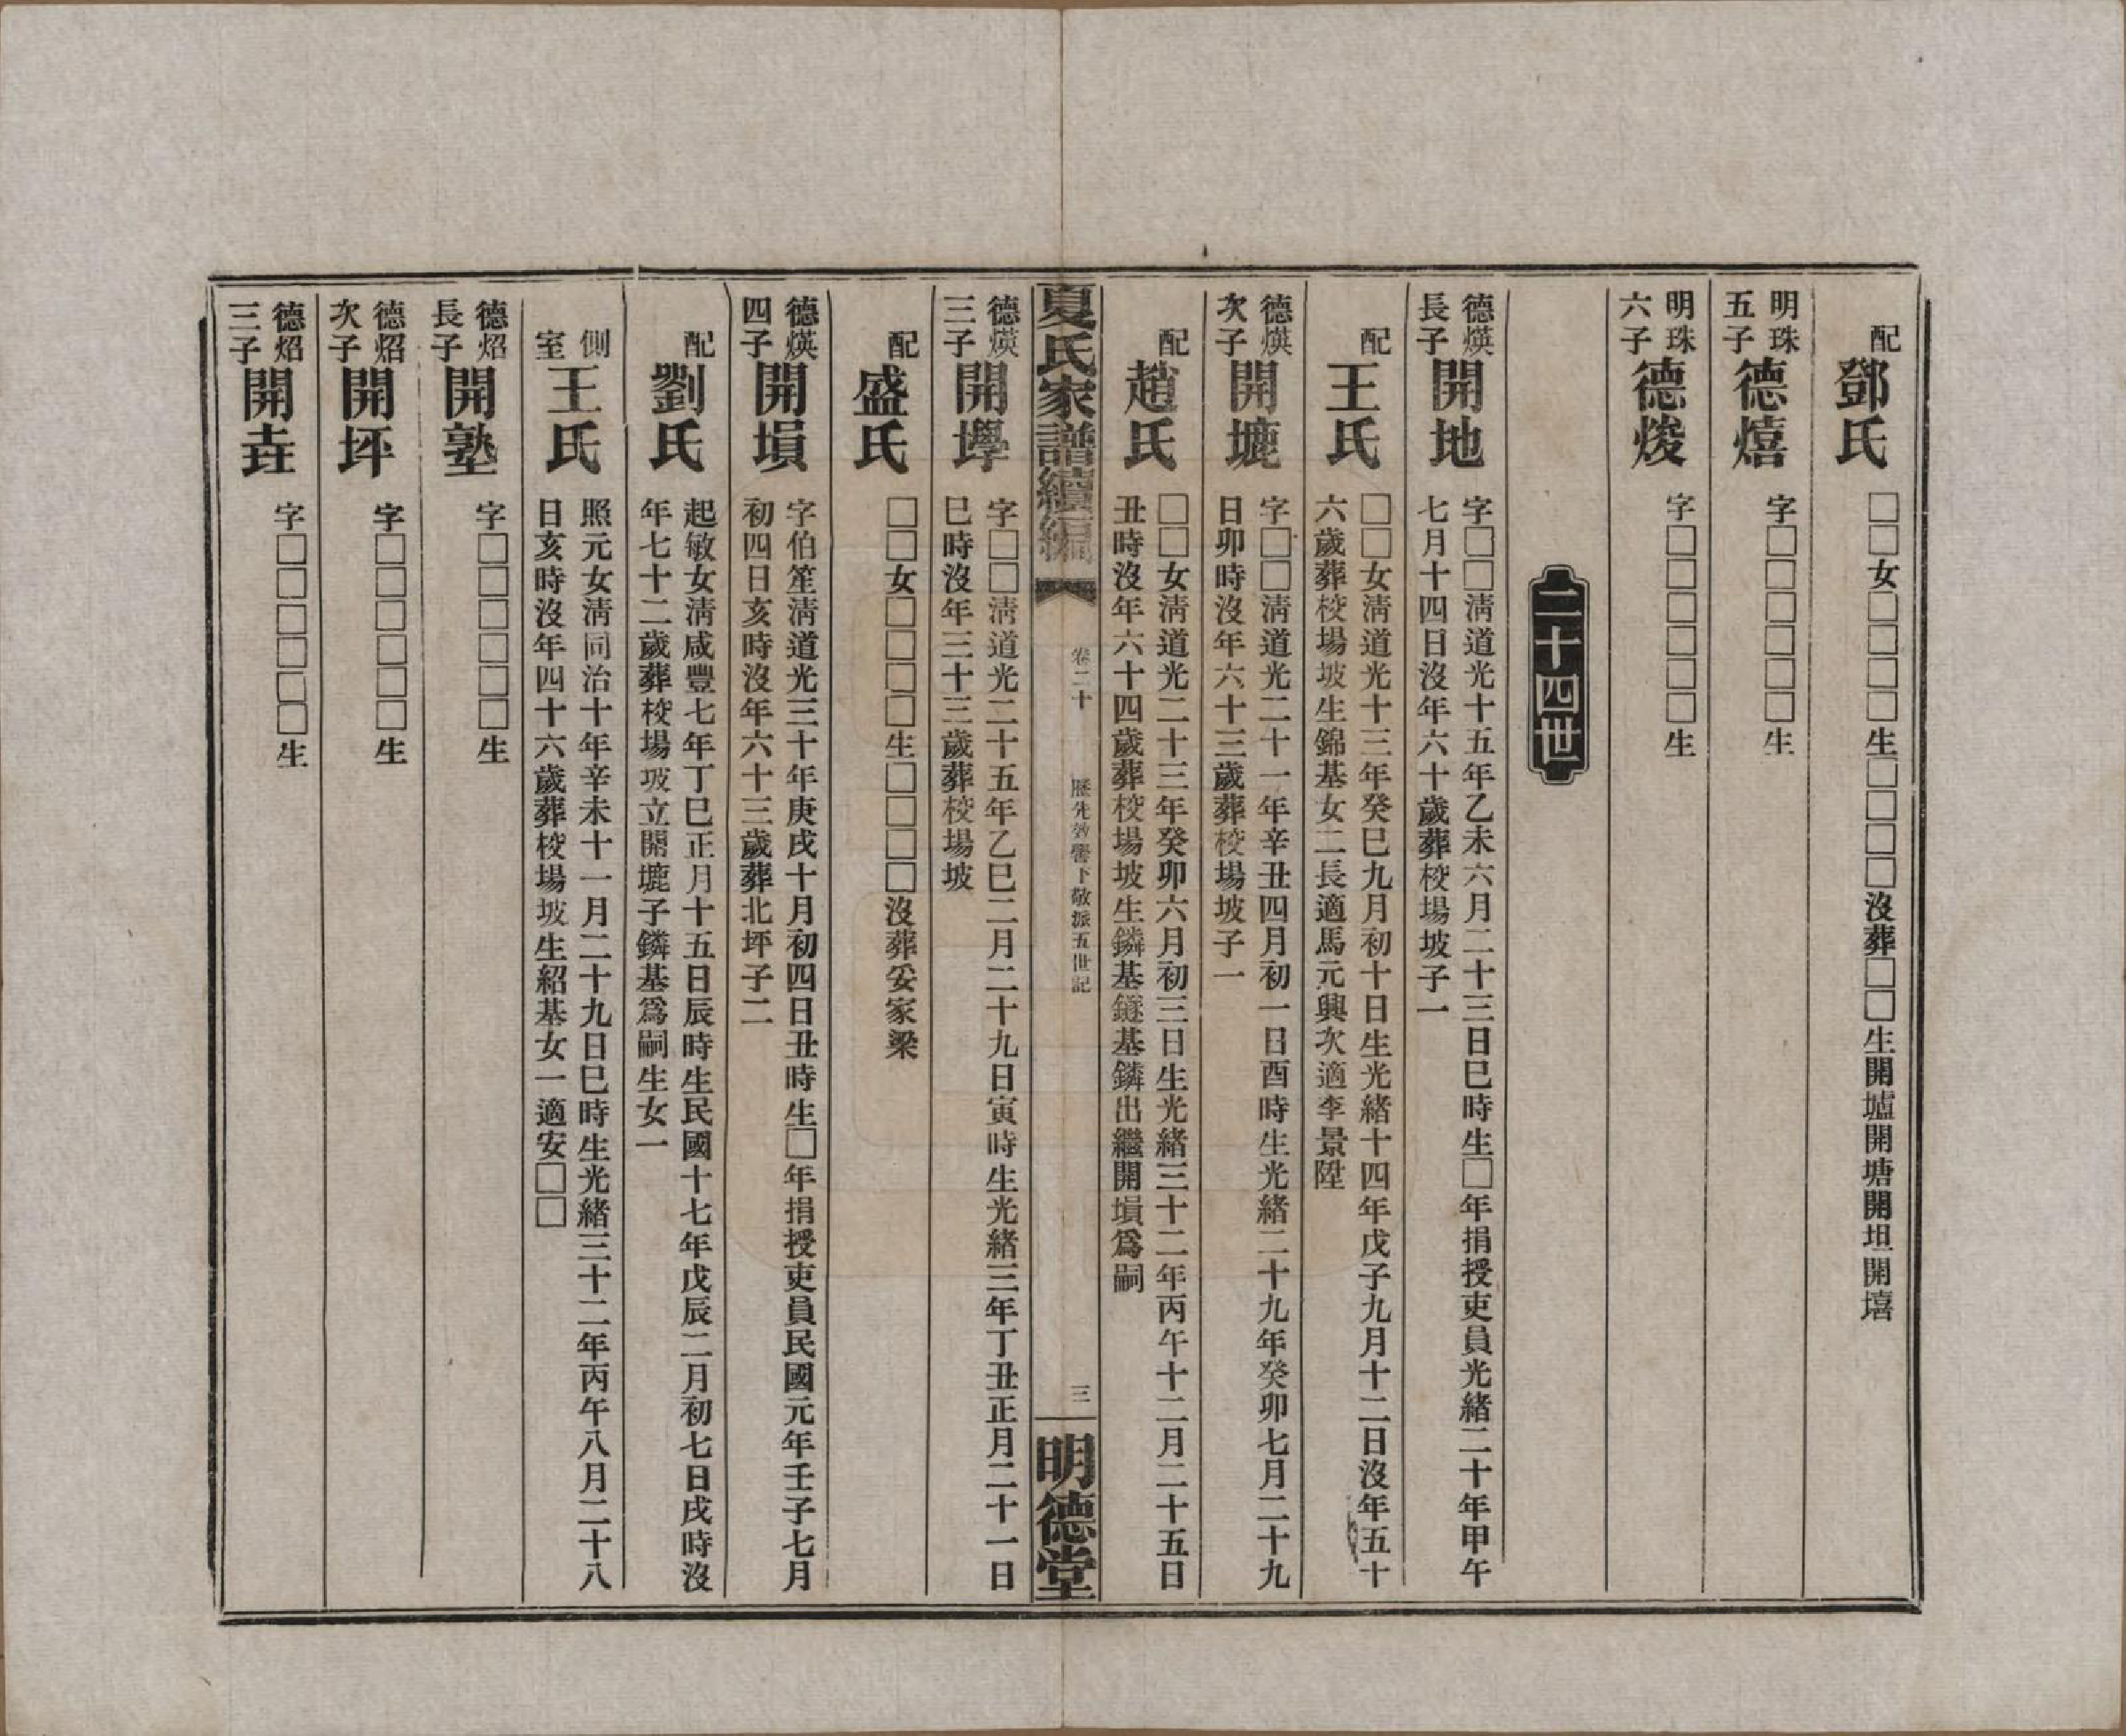 配
鄧氏
□□女□□□□生□□□□沒葬□□生開墟開塘開坦開墻
明珠
五子
德熺
字□□□□□□生
明珠
六子
德焌
字□□□□□□生
二十四世
德煐
長子
開地
字□□清道光十五年乙未六月二十三日巳時生□年捐授吏員光緒二十年甲午
七月十四日沒年六十歲葬校場坡子一
配
王氏
□□女清道光十三年癸巳九月初十日生光緒十四年戊子九月十二日沒年五十
六歲葬校場坡生錦基女二長適馬元興次適李景陞
德煐
次子
開㙩
字□□清道光二十一年辛丑四月初一日酉時生光緒二十九年癸卯七月二十九
日卯時沒年六十三歲葬校場坡子一
配
趙氏
□□女清道光二十三年癸卯六月初三日生光緒三十二年丙午十二月二十五日
丑時沒年六十四歲葬校場坡生鏻基鐩基鏻出繼開塤爲嗣
夏氏家譜續編
卷二十
歷先啓譽下敬派五世記
三
明德堂
德煐
三子
開壆
字□□清道光二十五年乙巳二月二十九日寅時生光緒三年丁丑正月二十一日
巳時沒年三十三歲葬校場坡
配
盛氏
□□女□□□□生□□□□沒葬妥家梁
德煐
四子
開塤
字伯笙清道光三十年庚戌十月初四日丑時生□年捐授吏員民國元年壬子七月
初四日亥時沒年六十三歲葬北坪子二
配
劉氏
起敏女清咸豐七年丁巳正月十五日辰時生民國十七年戊辰二月初七日戌時沒
年七十二歲葬校場坡立開㙩子鏻基爲嗣生女一
側
室
王氏
照元女清同治十年辛未十一月二十九日巳時生光緒三十二年丙午八月二十八
日亥時沒年四十六歲葬校場坡生紹基女一適安□□
德炤
長子
開塾
字□□□□□□生
德炤
次子
開坪
字□□□□□□生
德炤
三子
開垚
字□□□□□□生